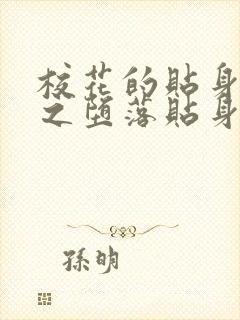 校花的貼身
之堕落貼身
孫明